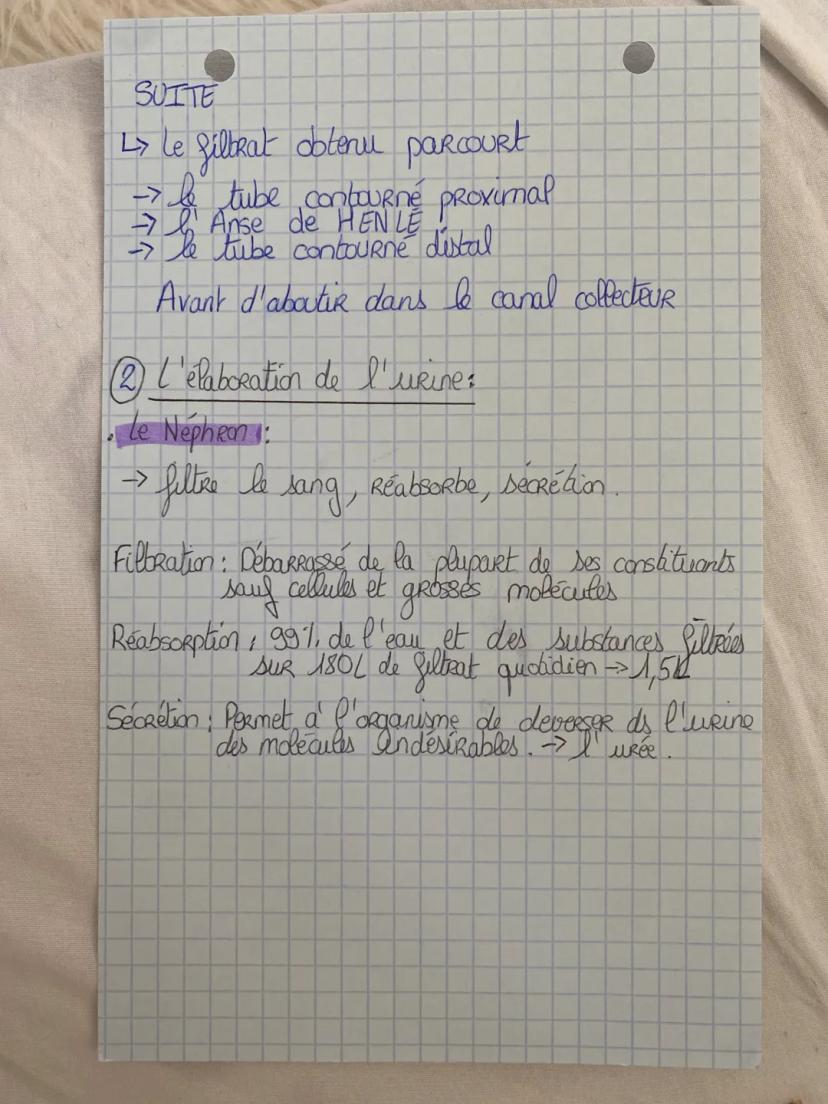 SUITE
↳ Le filtrat obtenu parcourt
→ le tube contourné proximal
→ l'Anse de HENLÉ
→ le tube contourné distal
Avant d'aboutir dans le canal collecteur
② L'élaboration de l'urine:
. Le Néphron :
→ filtre le sang, Réabsorbe, sécrétion.
Filtration : Débarrassé de la plupart de ses constituants
sauf cellules et grosses molécules
Réabsorption : 99% de l'eau et des substances filtrées
sur 180L de filtrat quotidien → 1,5L
Sécrétion : Permet à l'organisme de déverser ds l'urine
des molécules indésirables. → l'urée.